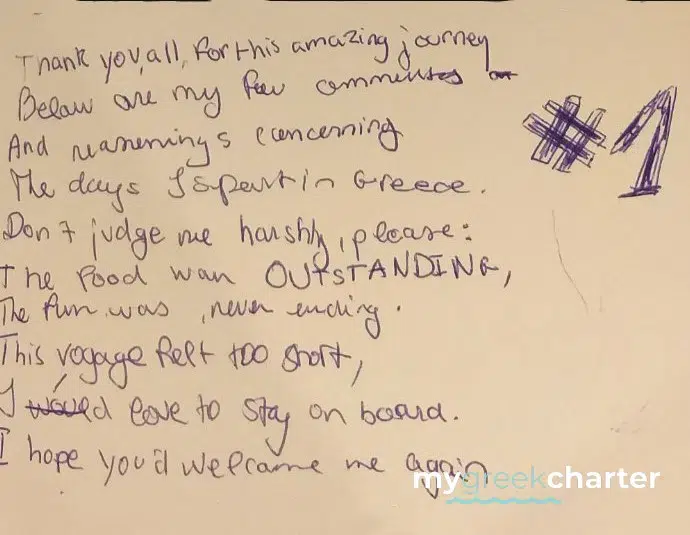 Thank you, all, for this amazing journey
Below are my few comments
And reasonings concerning
The days I spent in Greece.
#1
Don't judge me harshly, please:
The food was OUTSTANDING,
The fun was, never ending.
This voyage felt too short,
I'd love to stay on board.
I hope you'd welcome me again
mygreekcharter